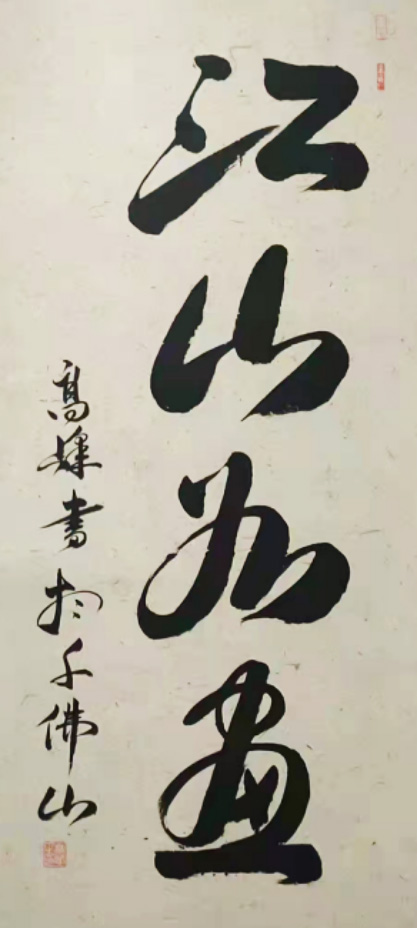 江山如畫
高嫁書於千佛山